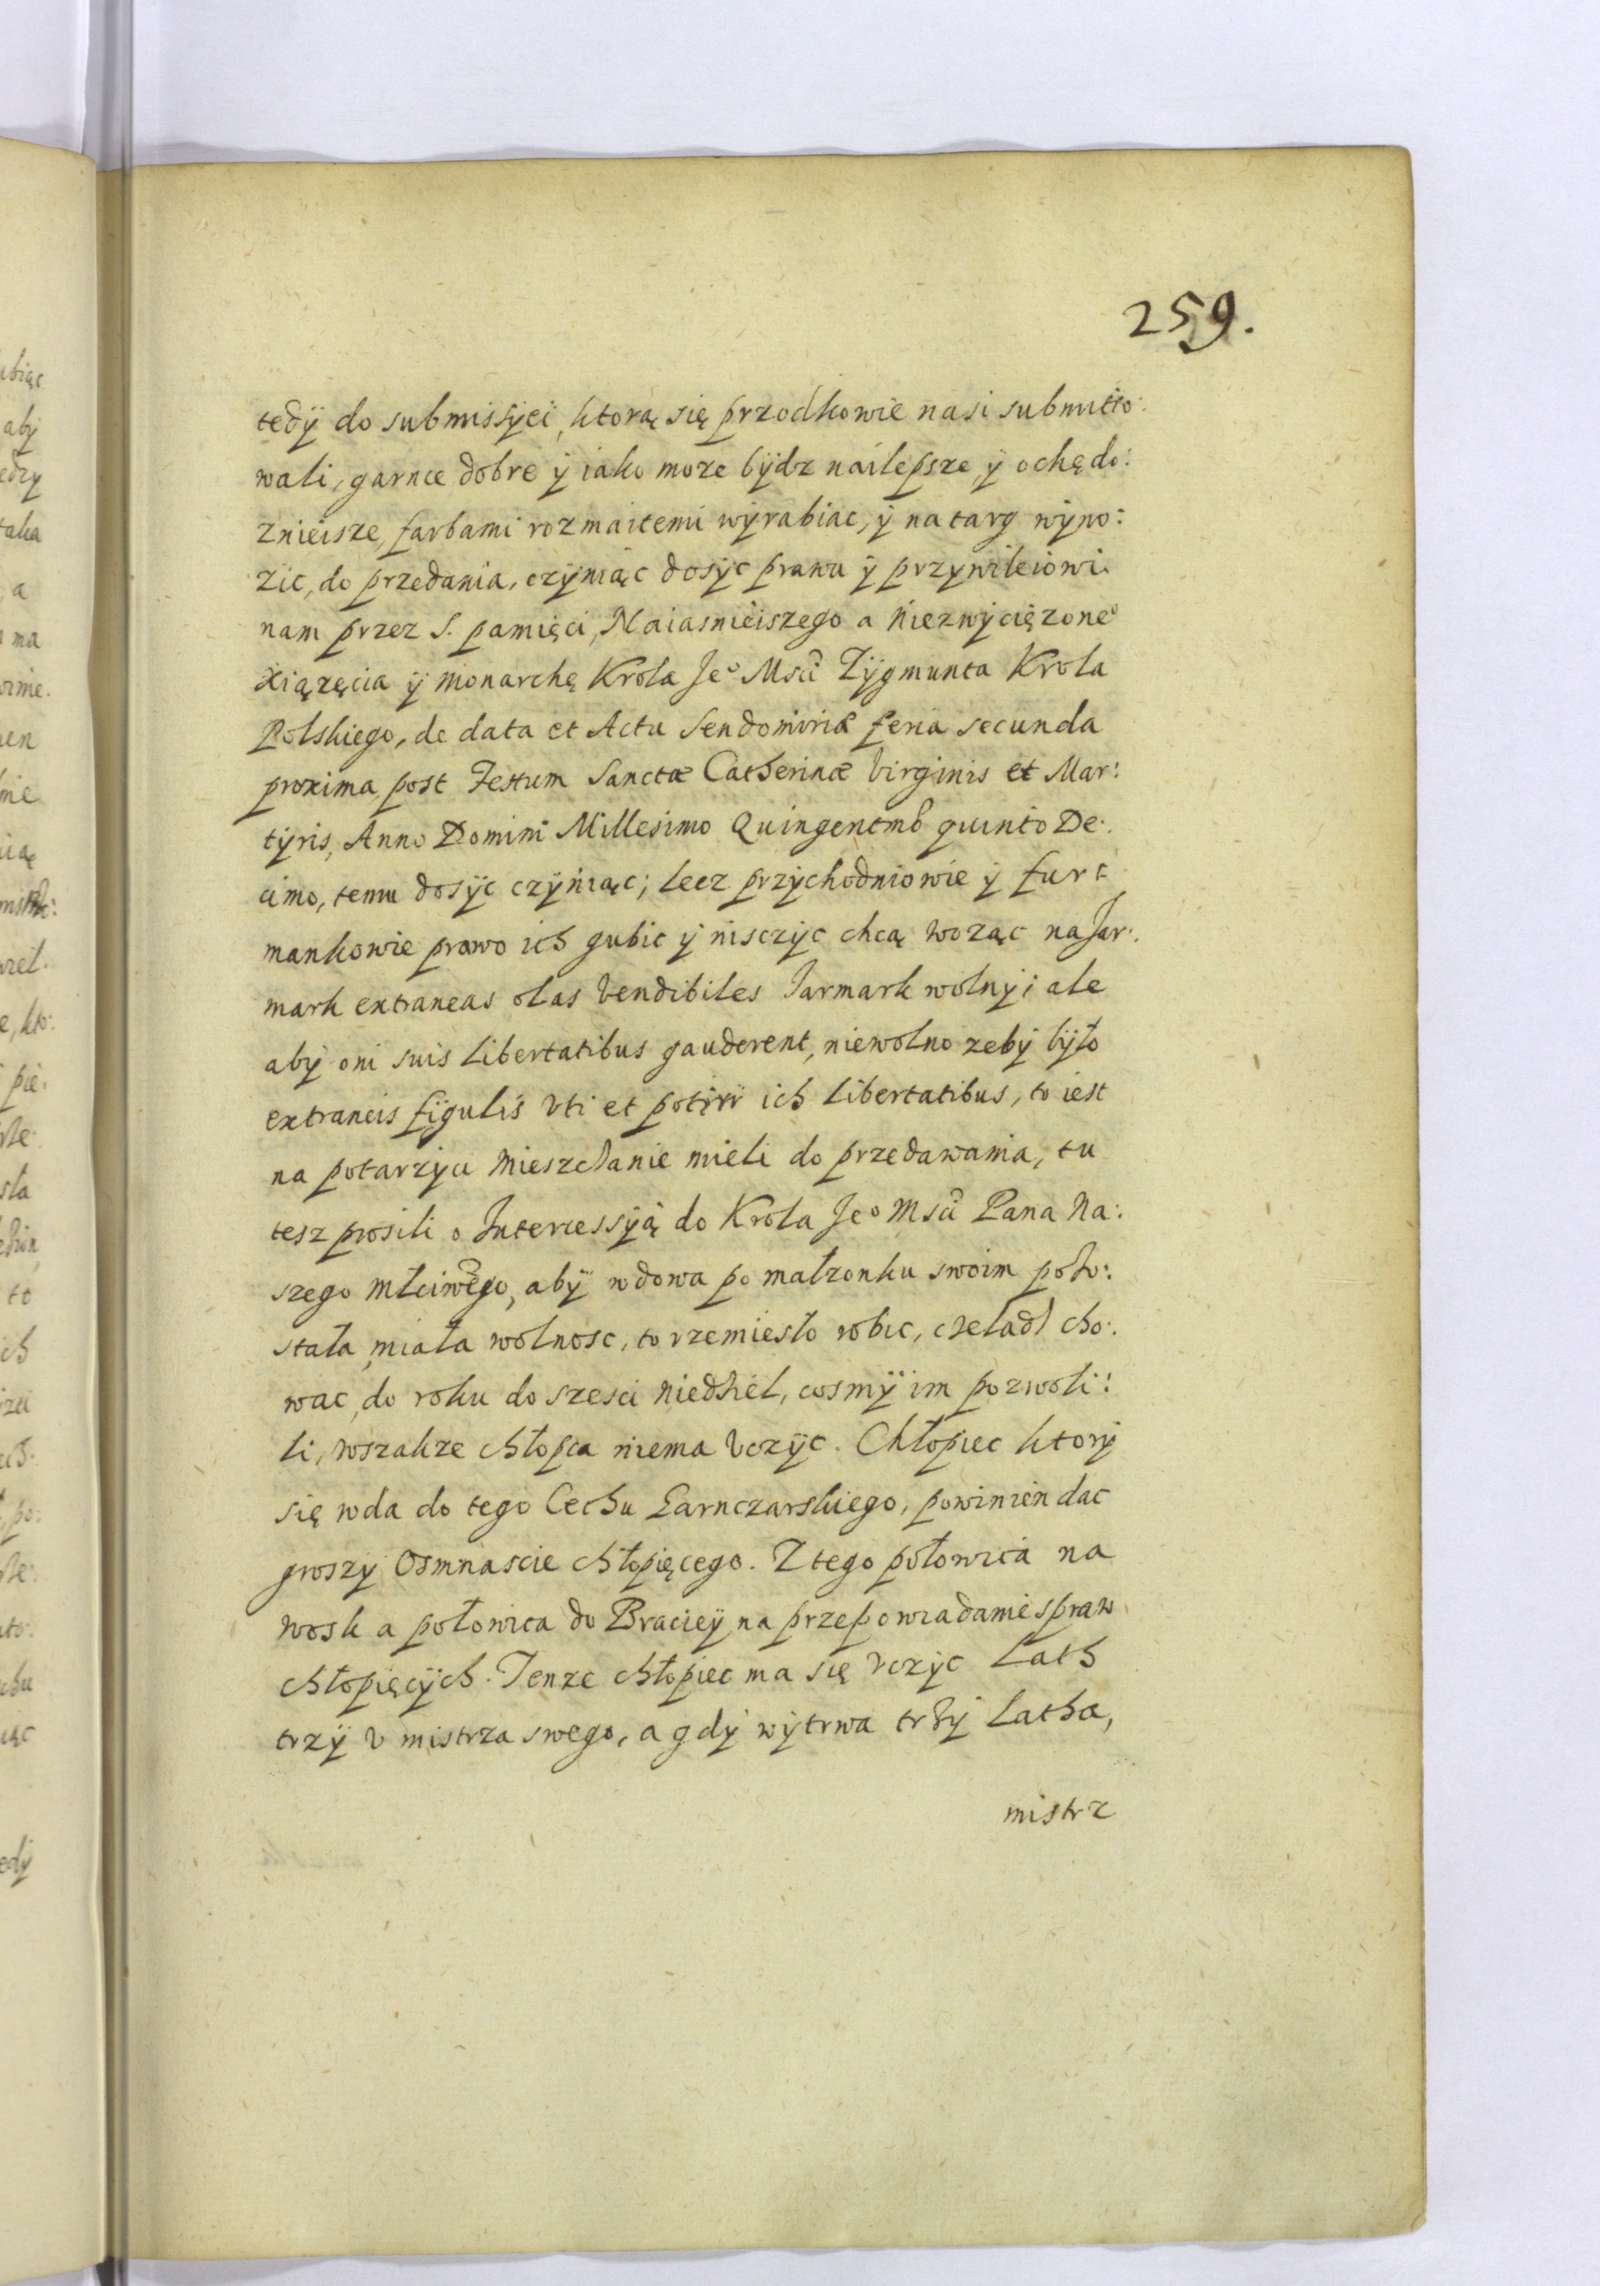 259.
tedÿ do submissÿei, ktorą się przodkowie nasi submitto:
wali, garnce dobre ÿ iako moze bÿdz nailepsze, ÿ ochędo:
znieisze, farbami rozmaitemi wÿrabiac, ÿ na targ wÿno:
zic, do przedania, czÿniąc dosÿc prawu ÿ przywileiowi
nam przez S. pamięci, Naiasnieiszego a Niezwÿciężone°
Xiązęcia ÿ Monarchę Krola Je° Msci Zÿgmunta Krola
Polskiego, de data et Actu Sendomiriæ feria secunda
proxima post Festum Sanctæ Catherinæ Virginis et Mar:
tÿris, Anno Domini Millesimo Quingentmo quinto De:
cimo, temu dosÿc czÿniąc; lecz przÿchodniowie ÿ furt
mankowie prawo ich gubic ÿ nisczÿc chcą wożąc na Jar:
mark extraneas olas vendibiles Jarmark wolnÿ; ale
abÿ oni suis libertatibus gauderent, niewolno zebÿ bÿło
extraneis figulis vti et potiri ich libertatibus, to iest
na potarzÿcu Mieszchanie mieli do przedawania, tu
tesz prosili o Intercessÿą do Krola Je° Msci Pana Na:
szego Młciwego, abÿ wdowa po małzonku swoim poło:
stała, miała wolnosc, to rzemiesło robic, czeladz cho:
wac, do roku do szesci Niedziel, cosmÿ im pozwoli:
li, wszakze chłopca niema vczÿc. Chłopiec ktorÿ
się wda do tego Cechu Garnczarskiego, powinien dac
groszÿ Osmnascie chłopięcego. Z tego połowica na
wosk a połowica do Bracieÿ na przepowiadanie spraw
chłopięcÿch. Tenze chłopiec ma się vczÿc Lath
trzÿ v mistrza swego, a gdÿ wÿtrwa trzÿ Latha,
mistrz